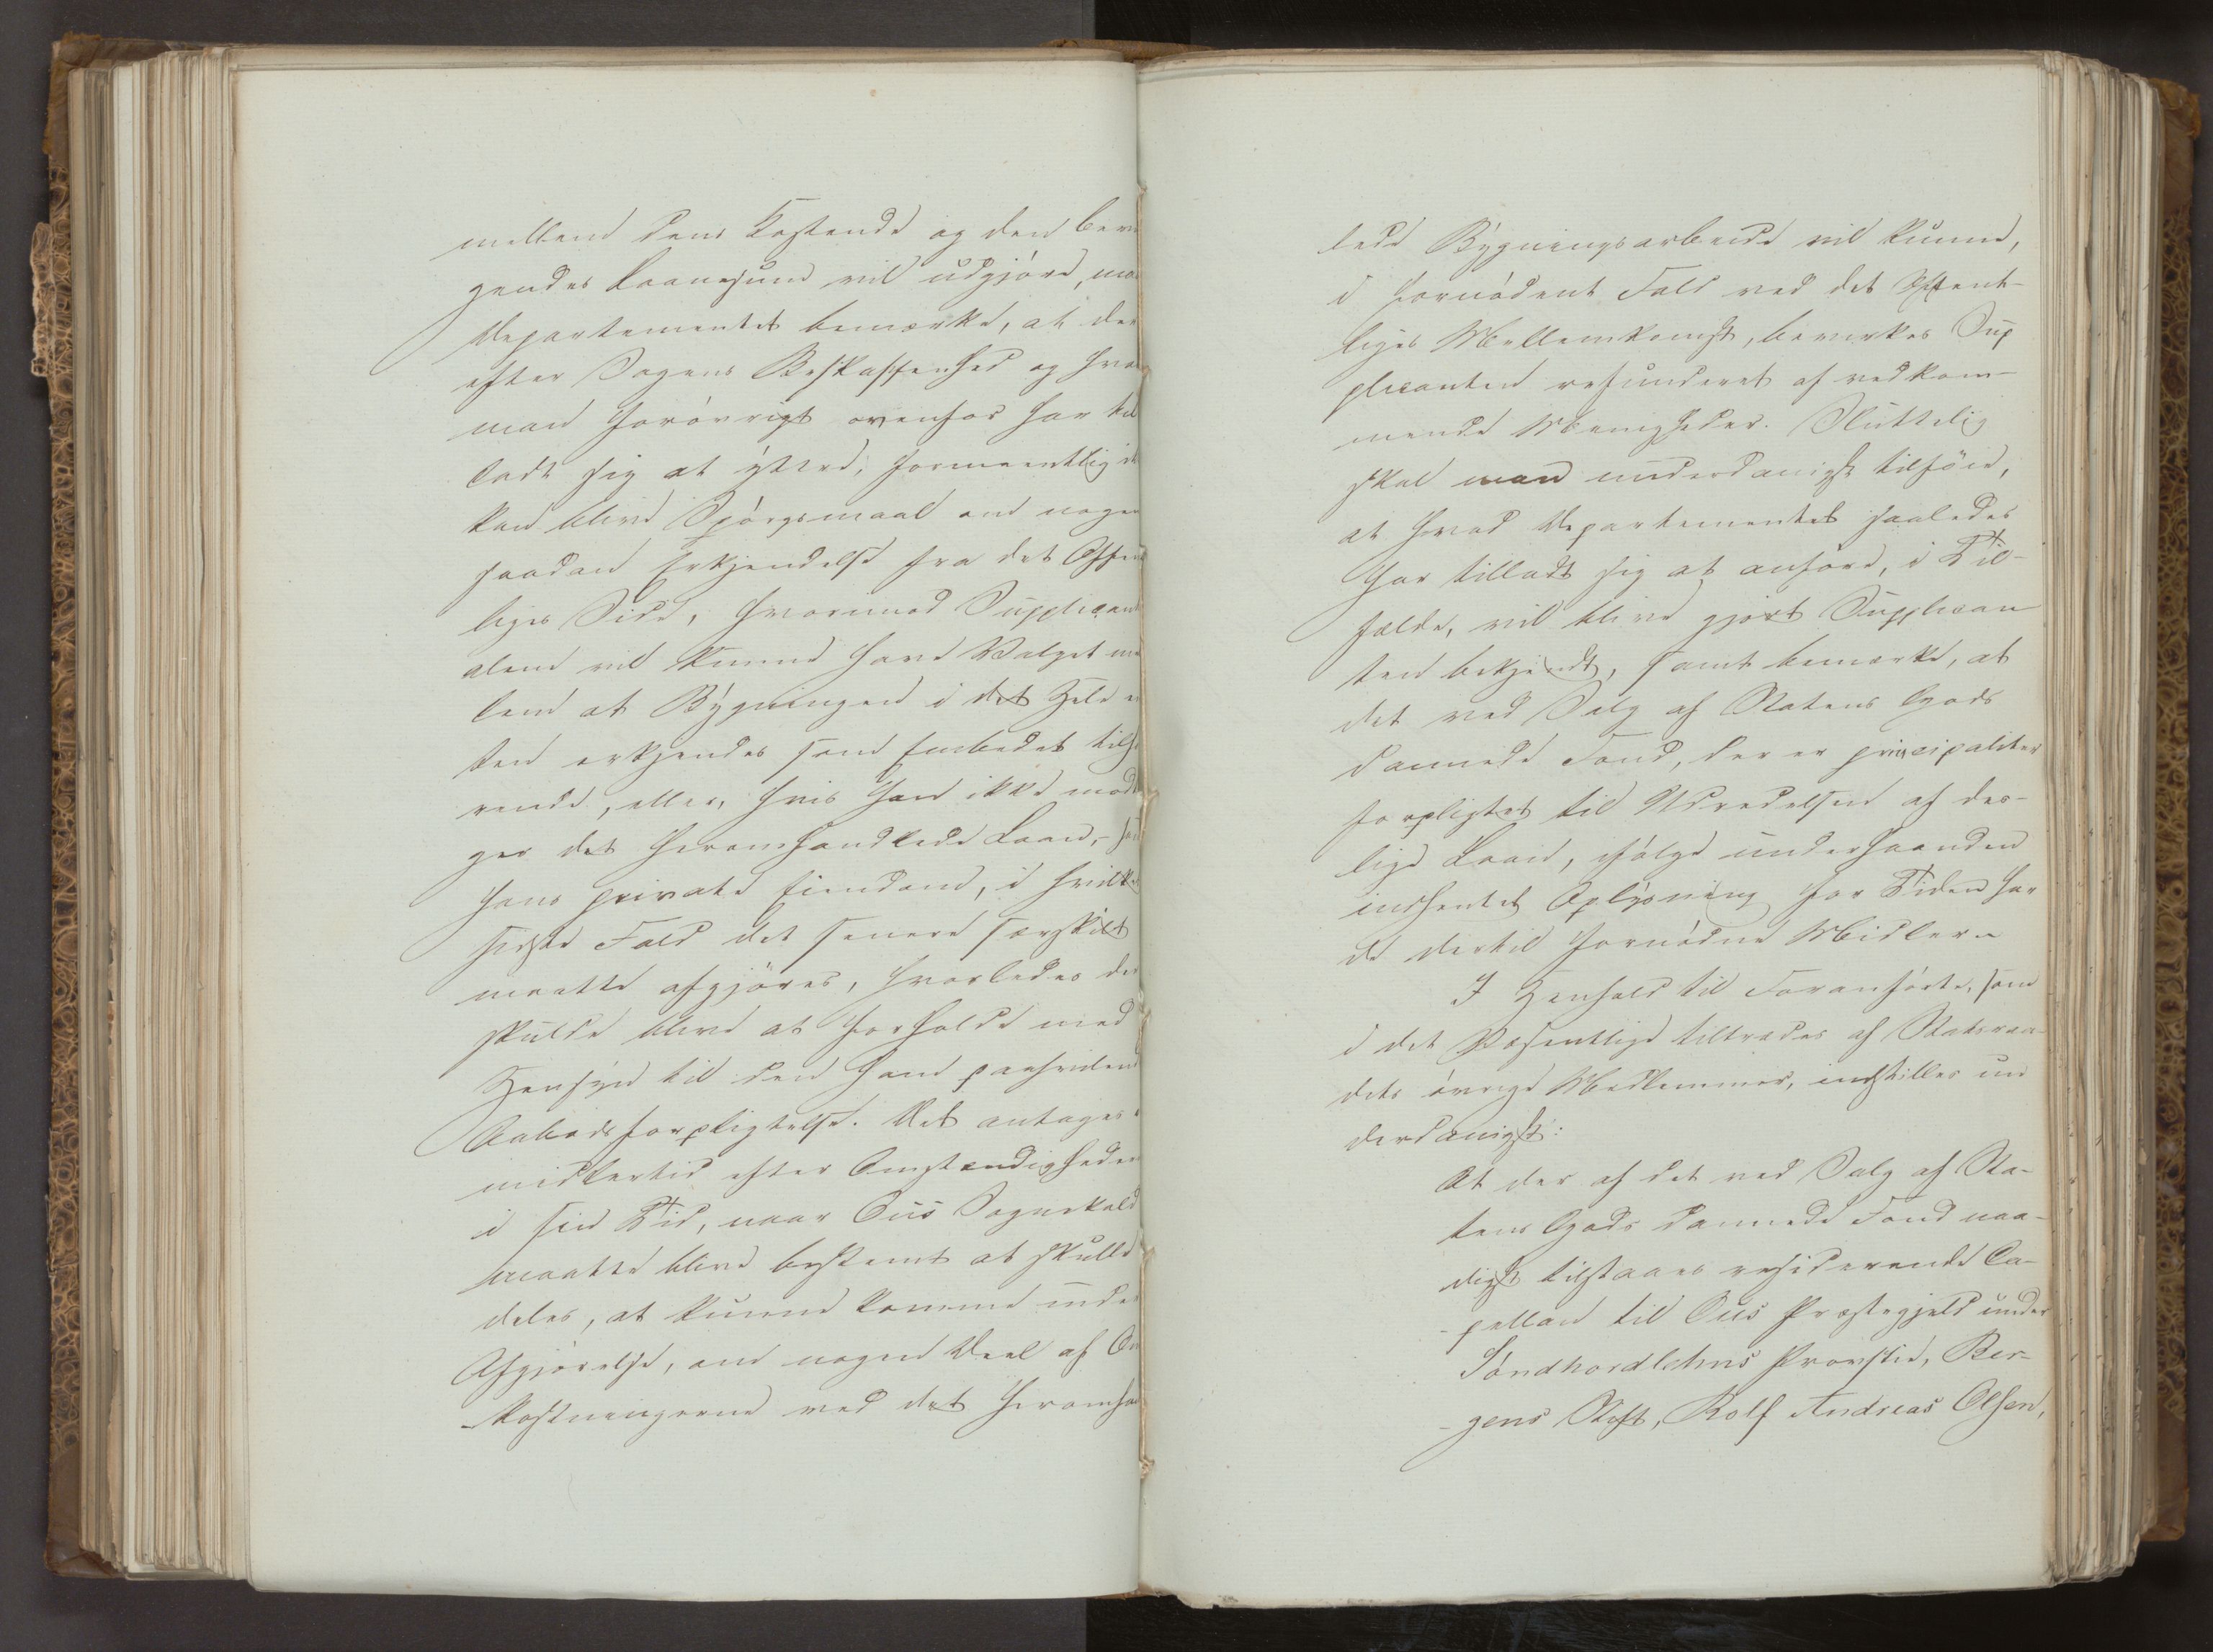 mellem dens Kostende og den bevil
gendes Laanesum vil udgjöre, maa
Departementet bemærke, at der
efter Sagens Beskaffenhed og hvad
man forövrigt ovenfor har til
ladt sig at yttre, formeentlig ei
kan blive Spörgsmaal om nogen
saadan Erkjendelse fra det Offent
liges Side, hvorimod Supplicanten
alene vil kunne have Valget mel
lem at Bygningen i det Hele en
ten erkjendes som Embedet tilhö
rende, eller, hvis han ikke modta
ger det heromhandlede Laan, som
hans private Eiendom, i hvilket
sidste Fald det senere særskilt
maatte afgjöres, hvorledes der
skulde blive at forholde med
Hensyn til den ham paahvilende
Aabodsforpligtelse. Det antages i
midlertid efter Omstændighederne
i sin Tid, naar Ous Sognekald
maatte blive bestemt at skulle
deles, at kunne komme under
Afgjörelse, om nogen Deel af Om
kostningerne ved det heromhand
lede Bygningsarbeide vil kunne,
i fornödent Fald ved det Offent-
liges Mellemkomst, bevirkes Sup
plicanten refunderet af vedkom-
mende Menigheder. Sluttelig
skal man underdanigst tilföie,
at hvad Departementet saaledes
har tilladt sig at anföre, i Til-
fælde, vil blive gjort Supplican
ten bekjendt, samt bemærke, at
det ved Salg af Statens Gods
dannede Fond, der er principaliter
forpligtet til Udredelsen af des-
lige Laan, ifölge underhaanden
indhentet Oplysning for Tiden har
de dertil fornödne Midler.
I Henhold til Foranförte, som
i det Væsentlige tiltrædes af Statsraa-
dets övrige Medlemmer, indstilles un
derdanigst:
At der af det ved Salg af Sta-
tens Gods dannede Fond naa-
digst tilstaaes residerende Ca-
pellan til Ous Præstegjeld under
Söndhordlehns Provstie, Ber-
gens Stift, Rolf Andreas Olsen,